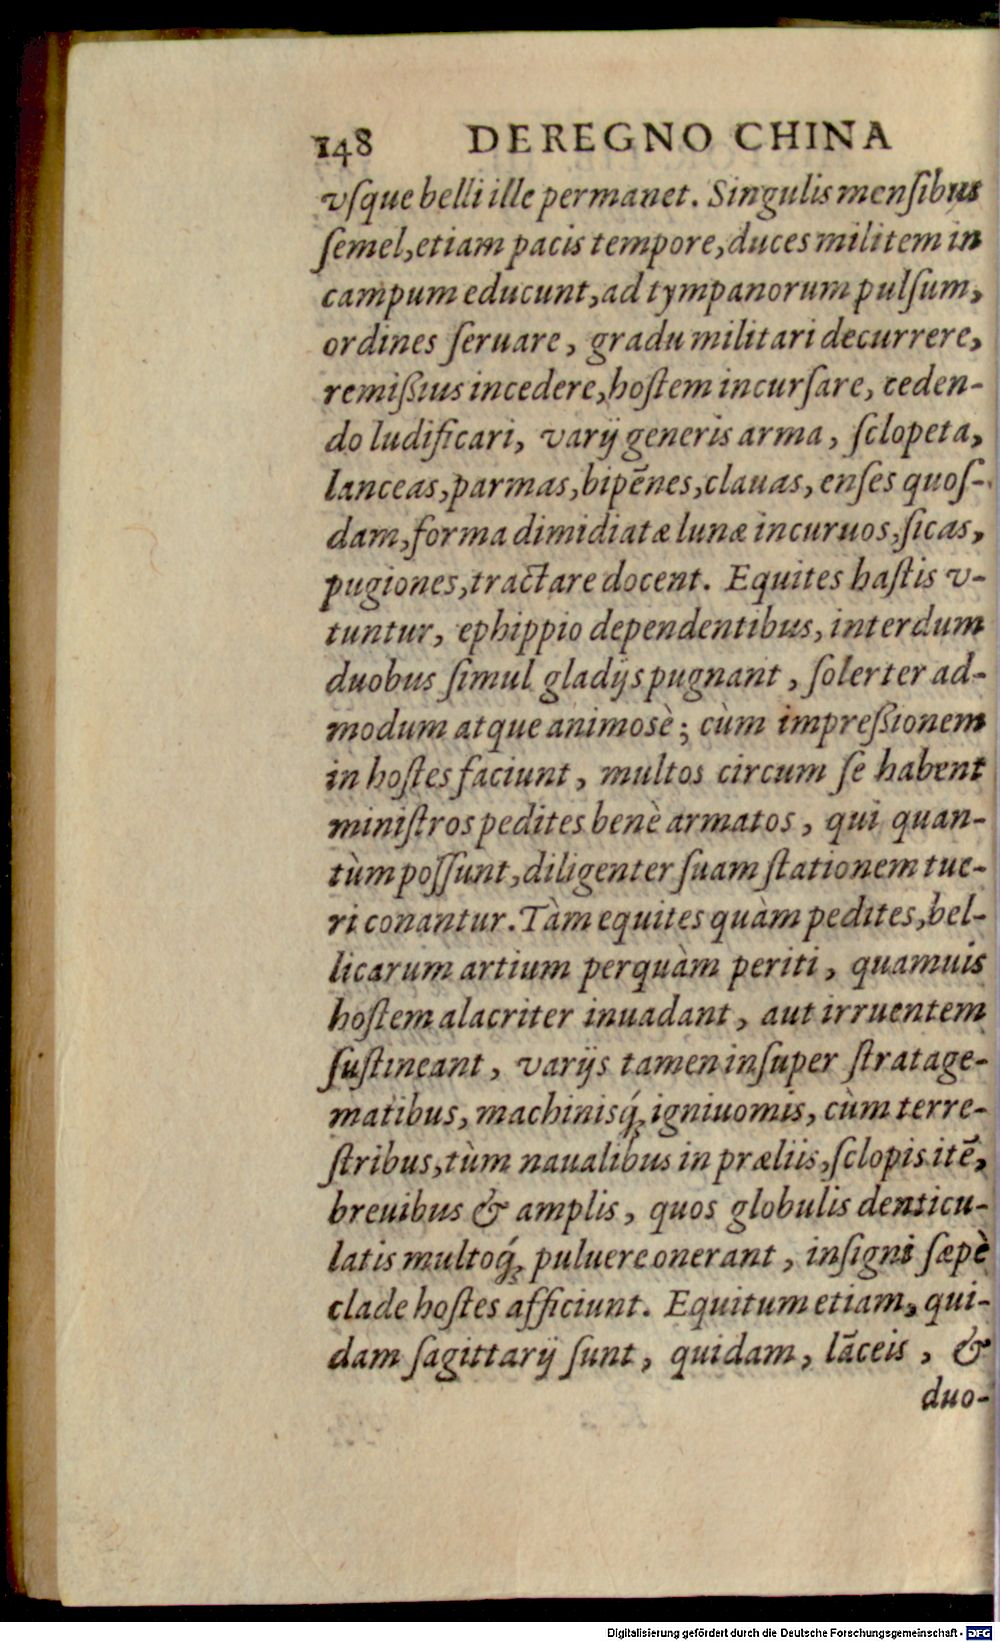 148 DE REGNO CHINA
vſque belli ille permanet. Singulis menſibus
ſemel, etiam pacis tempore, duces militem in
campum educunt, ad tympanorum pulſum,
ordines ſeruare, gradu militari decurrere,
remißius incedere, hoſtem incurſare, ceden-
do ludificari, varij generis arma, ſclopeta,
lanceas, parmas, bipēnes, clauas, enſes quoſ-
dam, forma dimidiatæ lunæ incuruos, ſicas,
pugiones, tractare docent. Equites haſtis v-
tuntur, ephippio dependentibus, interdum
duobus ſimul gladijs pugnant, ſolerter ad-
modum atque animosè; cùm impreßionem
in hoſtes faciunt, multos circum ſe habent
miniſtros pedites benè armatos, qui quan-
tùm poſſunt, diligenter ſuam ſtationem tue-
ri conantur. Tàm equites quàm pedites, bel-
licarum artium perquàm periti, quamuis
hoſtem alacriter inuadant, aut irruentem
ſuſtineant, varijs tamen inſuper ſtratage-
matibus, machinisq́; igniuomis, cùm terre-
ſtribus, tùm naualibus in præliis, ſclopis itē,
breuibus & amplis, quos globulis denticu-
latis multoq́; puluere onerant, inſigni ſæpè
clade hoſtes afficiunt. Equitum etiam, qui-
dam ſagittarij ſunt, quidam, lāceis, &
duo-
Digitalisierung gefördert durch die Deutsche Forschungsgemeinschaft - DFG